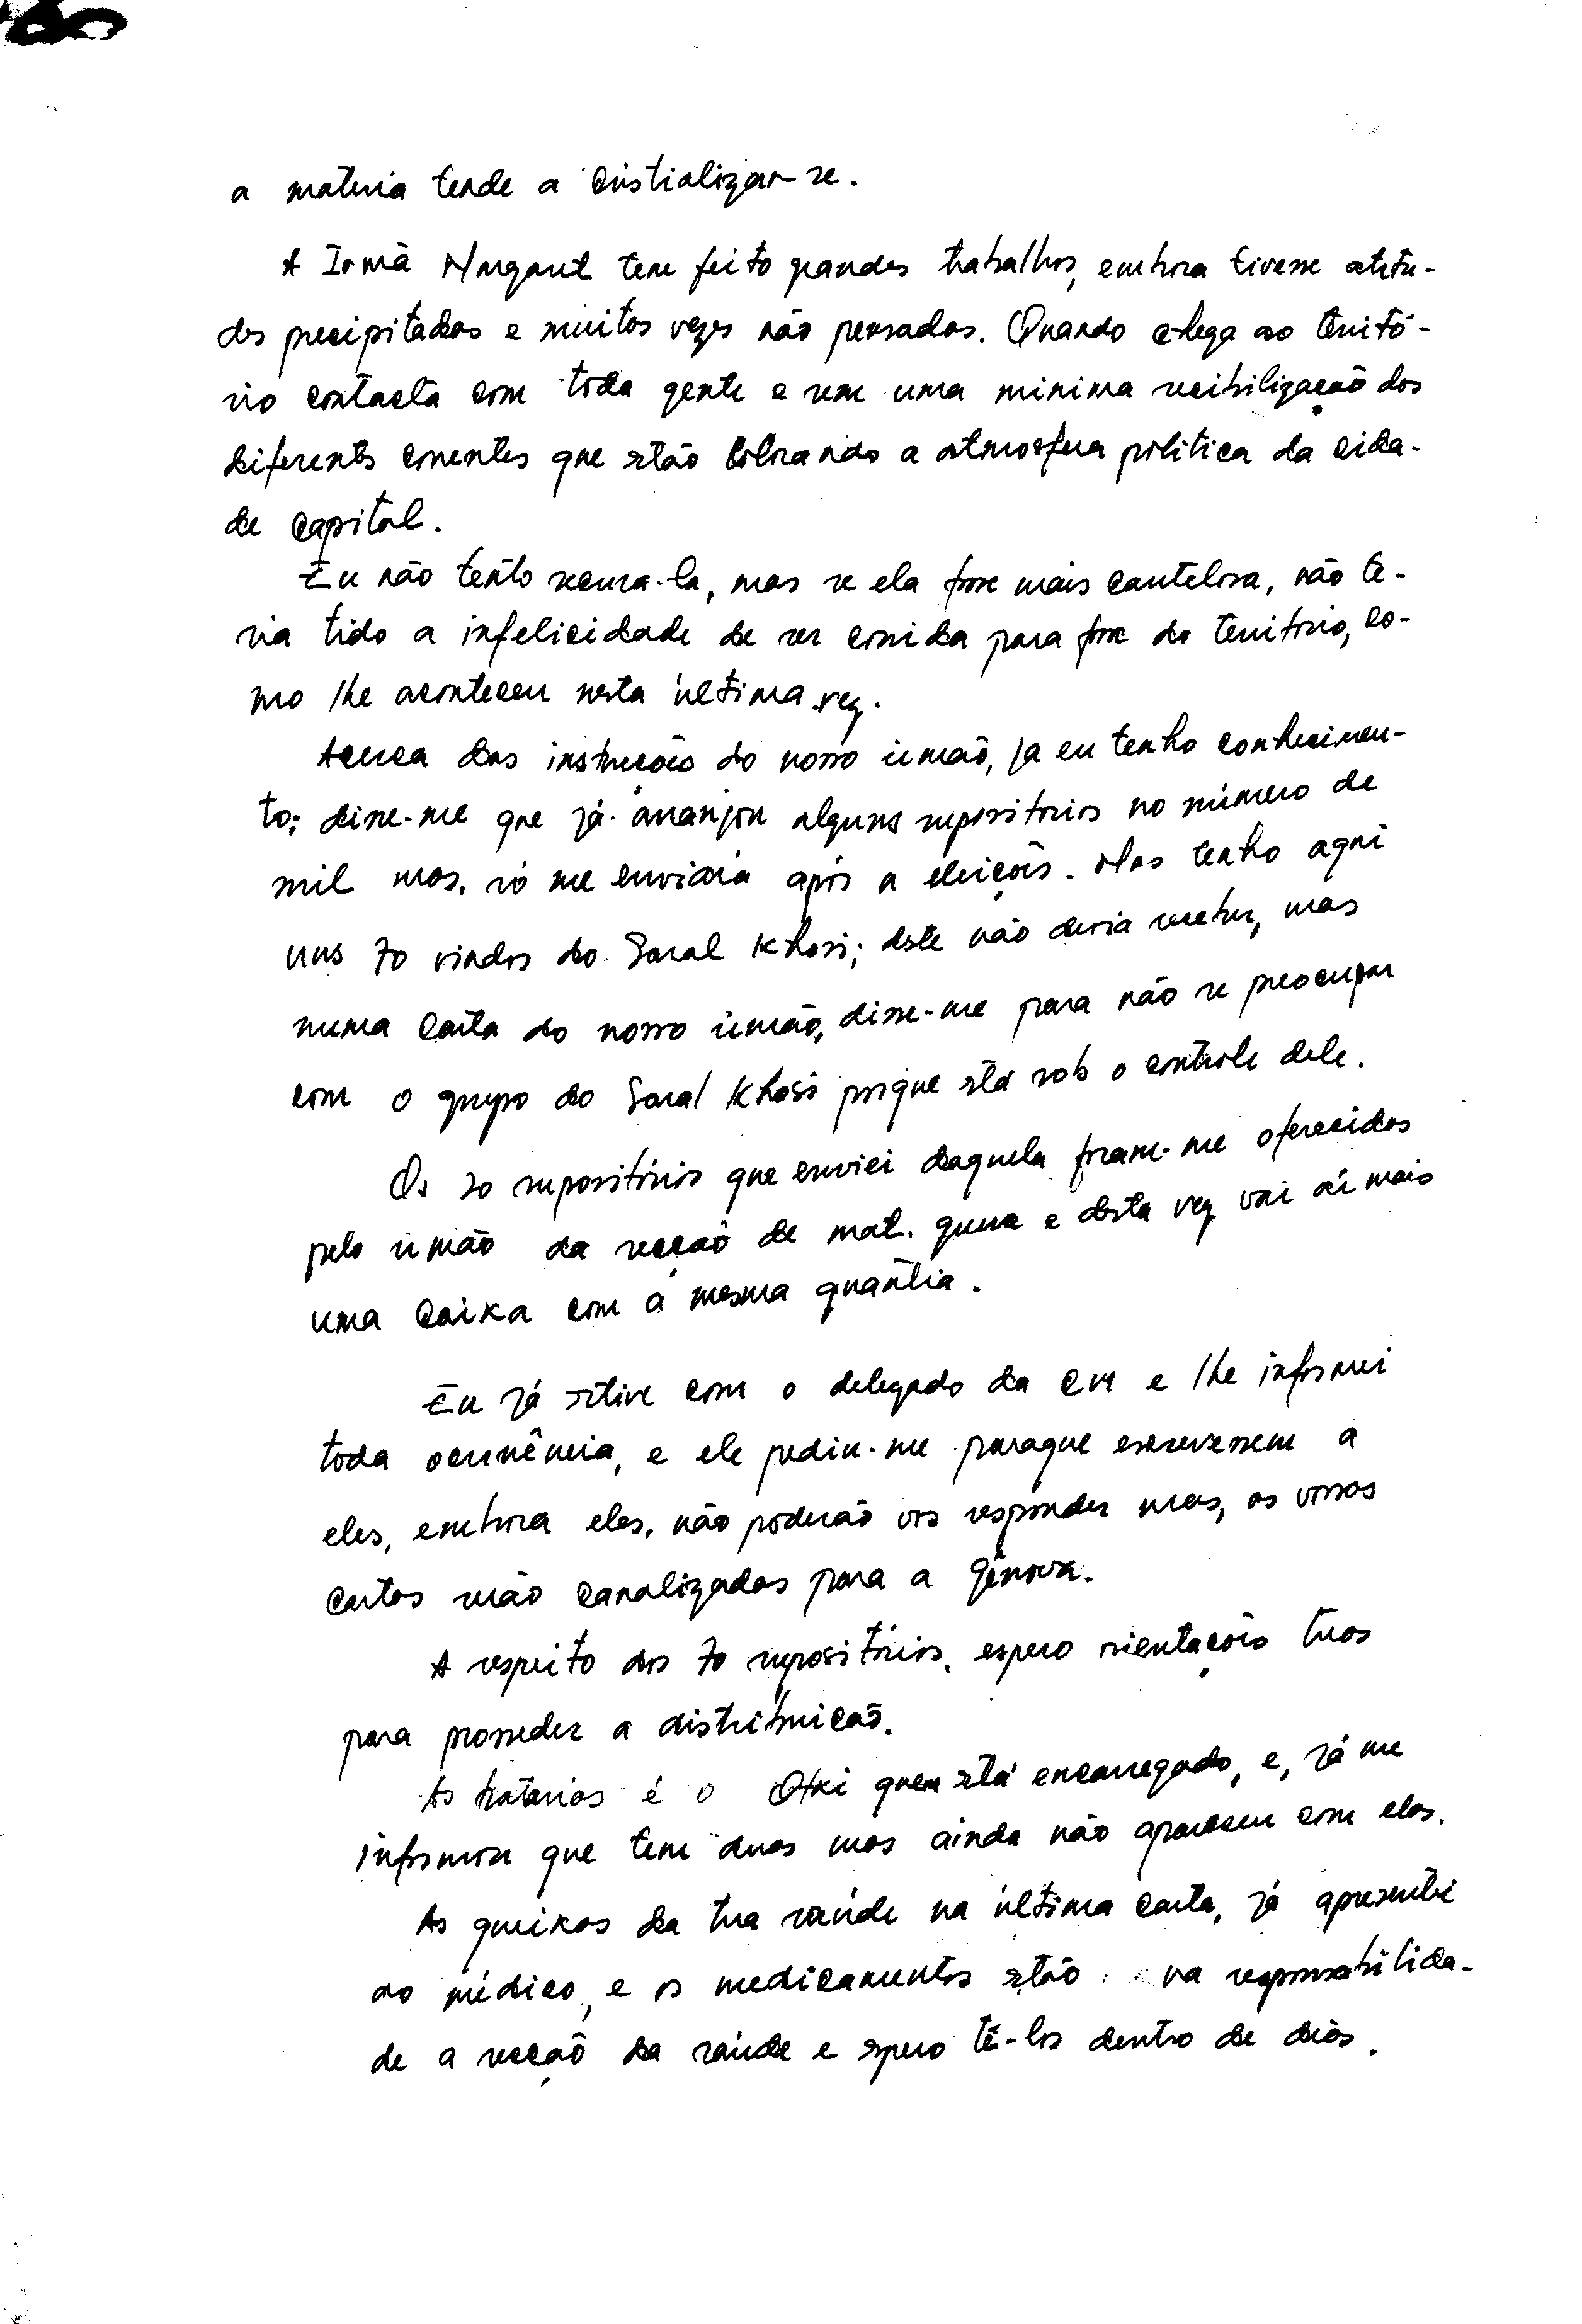 a materia tende a cristializar-se.
A Irmã Margaret tem feito grandes trabalhos, embora tivesse atitu-
des precipitadas e muitas vezes não pensadas. Quando chega ao territó-
rio contacta com toda gente e sem uma minima sensibilização dos
diferents correntes que estão a atmosfera politica da cida-
de capital.
Eu não tento censura-la, mas se ela fosse mais cautelosa, não te-
ria tido a infelicidade de ser corrida para fora do territorio, co-
mo lhe aconteceu nesta última vez.
Acerca das instrucções do nosso irmão, ja eu tenho conhecimen-
to; disse-me que já arranjou alguns supositorios no número de
mil mas, só me enviará após a eleições. Mas tenho aqui
uns 70 vindos do Saral Khosi; deste não devia receber, mas
numa carta do nosso irmão, disse-me para não se preocupar
com o grupo do Saral Khosi porque stá sob o controle dele.
Os 20 supositórios que enviei daquela foram-me oferecidos
pelo irmão da secção de mat. guerra e desta vez vai aí mais
uma caixa com a mesma quantia.
Eu já stive com o delegado da CVI e lhe informei
toda ocurrência, e ele pediu-me paraque escrevessem a
eles, embora eles, não poderão vos responder mas, as vossas
cartas serão canalizadas para a Génova.
A respeito dos 70 supositórios, espero orientações tuas
para prosseder a distribuicão.
As baterias é o Oki quem stá encarregado, e, já me
informou que tem duas mas ainda não apareceu com elas.
As queixas da tua saúde na última carta, já apresentei
ao médico, e os medicamentos stão na responsabilida-
de a secção da saúde e spero tê-los dentro de dias.